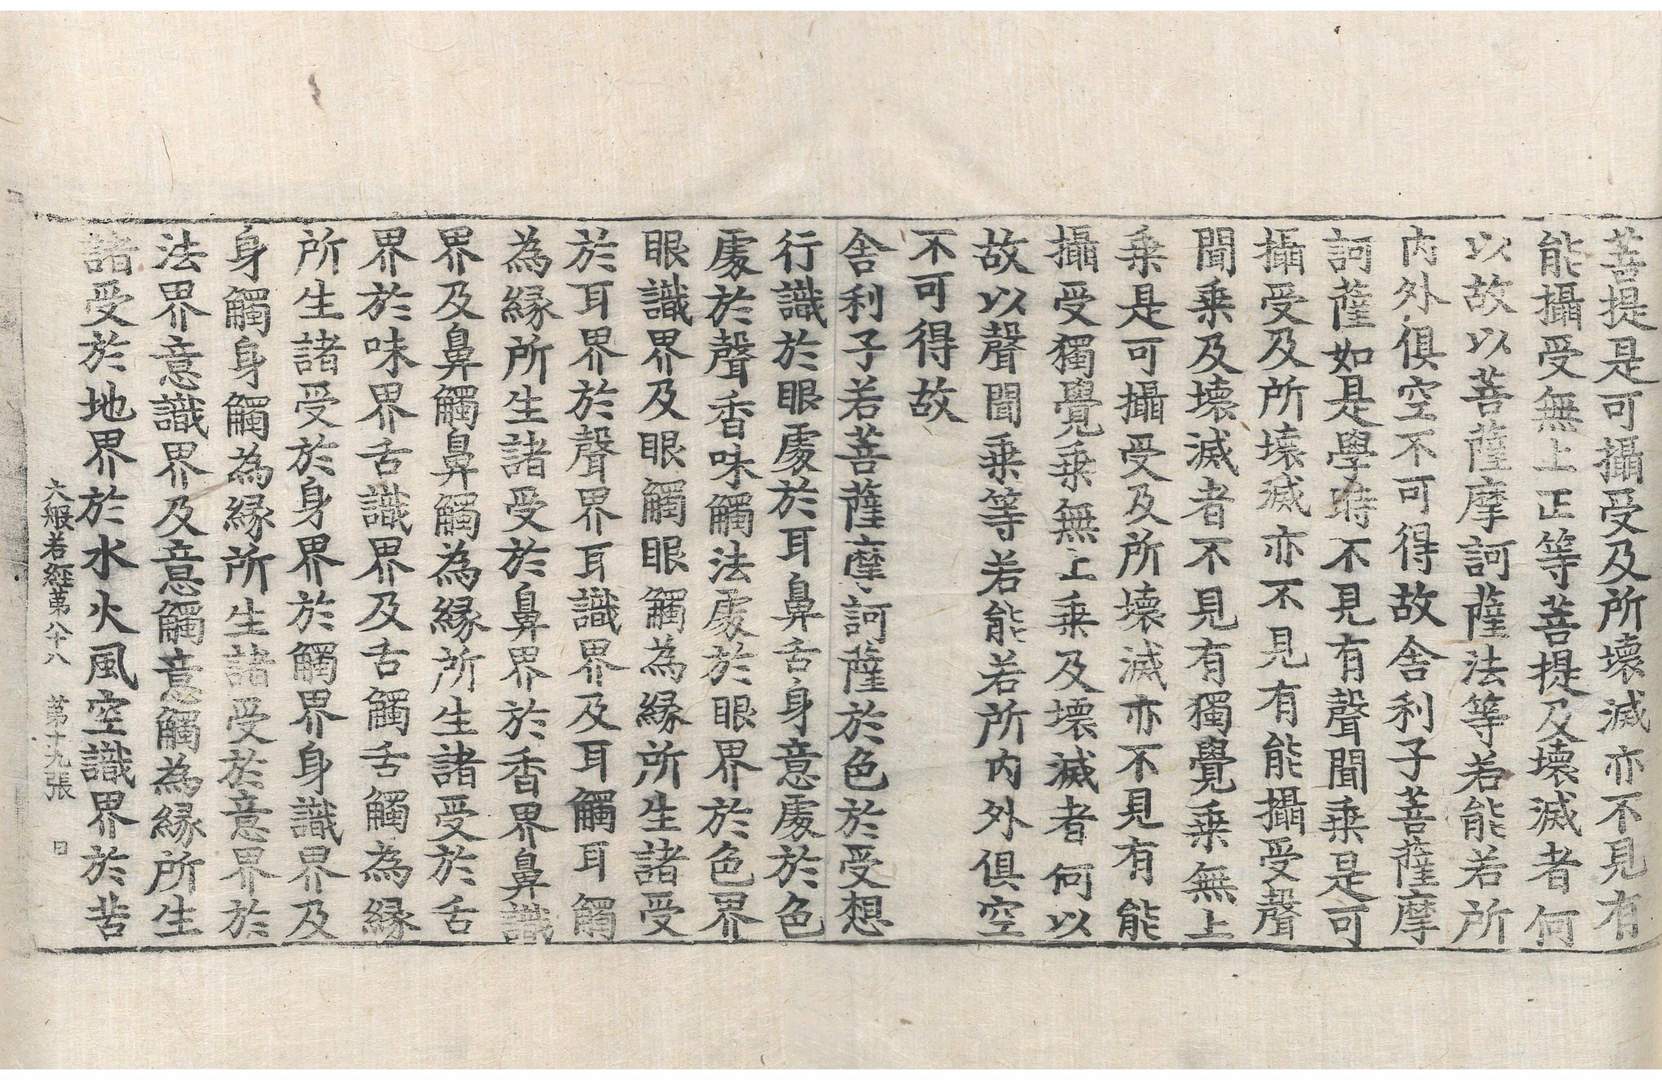 菩提是可攝受及所壞滅亦不見有
能攝受無上正等菩提及壞滅者何
以故以菩薩摩訶薩法等若能若所
內外俱空不可得故舍利子菩薩摩
訶薩如是學時不見有聲聞乗是可
攝受及所壞滅亦不見有能攝受聲
聞乗及壞滅者不見有獨覺乗無上
乗是可攝受及所壞滅亦不見有能
攝受獨覺乗無上乗及壞滅者何以
故以聲聞乗等若能若所內外俱空
不可得故
舍利子若菩薩摩訶薩於色於受想
行識於眼處於耳鼻舌身意處於色
處於聲香味觸法處於眼界於色界
眼識界及眼觸眼觸為縁所生諸受
於耳界於聲界耳識界及耳觸耳觸
為縁所生諸受於鼻界於香界鼻識
界及鼻觸鼻觸為縁所生諸受於舌
界於味界舌識界及舌觸舌觸為縁
所生諸受於身界於觸界身識界及
身觸身觸為縁所生諸受於意界於
法界意識界及意觸意觸為縁所生
諸受於地界於水火風空識界於苦
大般若經第八十八 第十九張 日